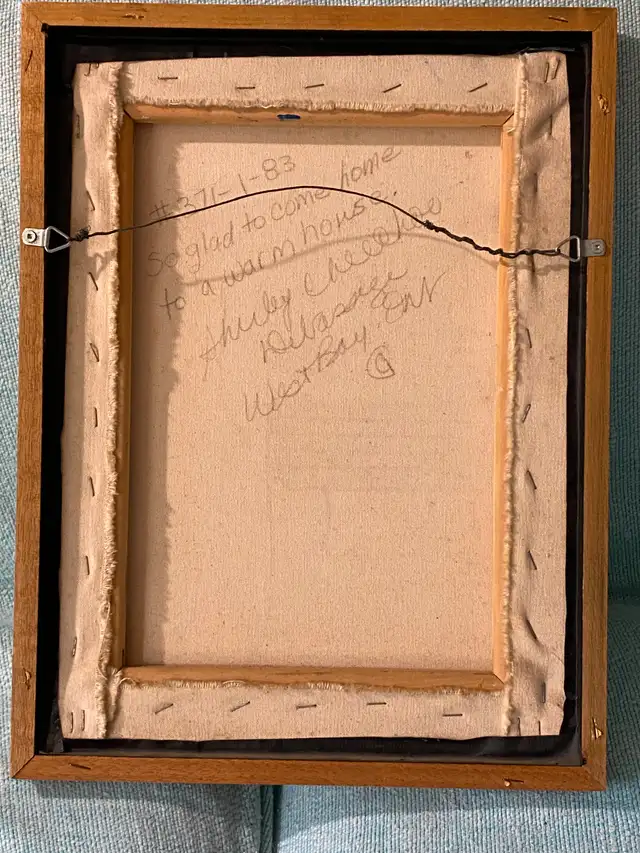 #371-1-83
So glad to come home
to a warm house.
Shirley Cheechoo
Debassige
West Bay. ONT
©